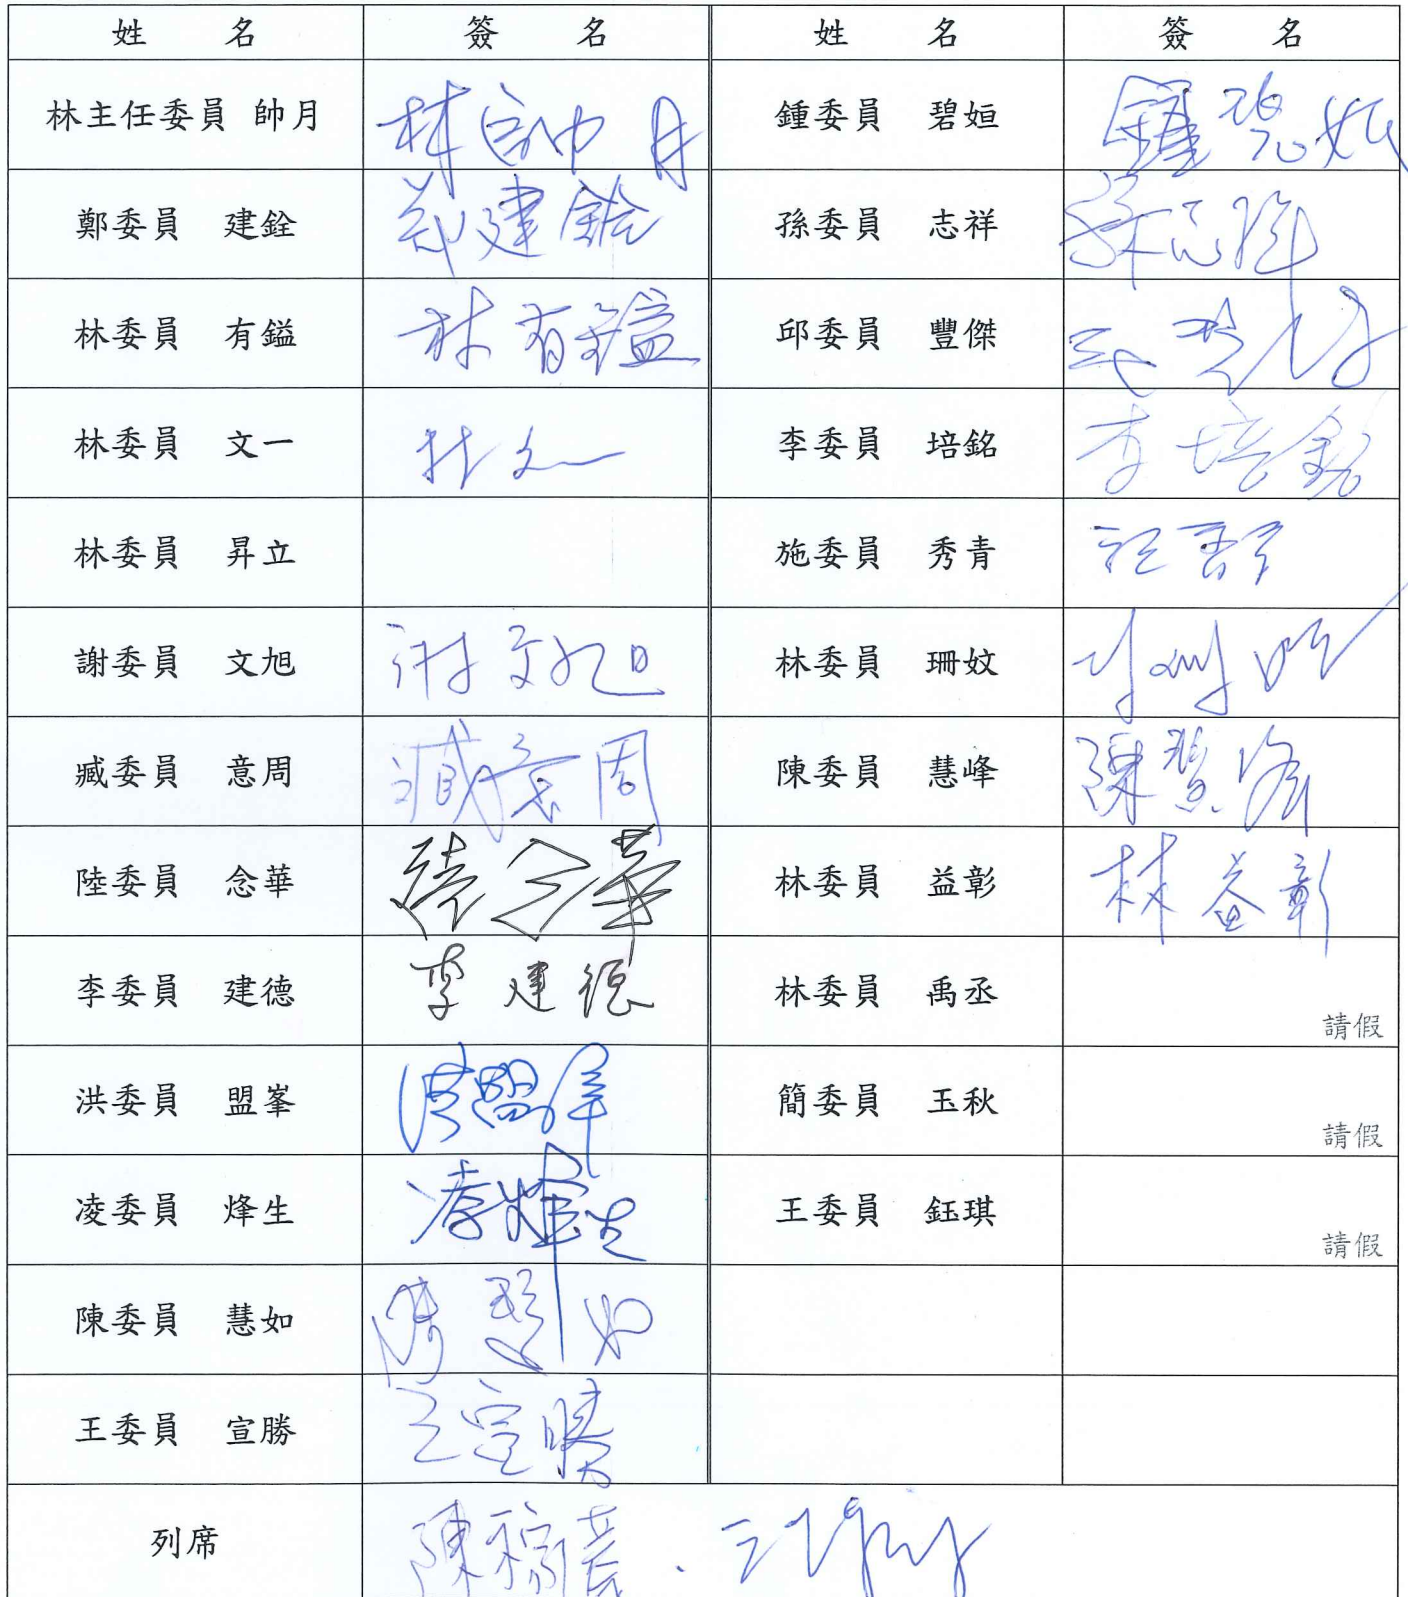 姓 名 簽 名 姓 名 簽 名
林主任委員 帥月 林帥月 鍾委員 碧姮 鍾碧姮
鄭委員 建銓 鄭建銓 孫委員 志祥 孫志祥
林委員 有鎰 林有鎰 邱委員 豐傑
林委員 文一 林文一 李委員 培銘 李培銘
林委員 昇立 施委員 秀青
謝委員 文旭 謝文旭 林委員 珊妏
臧委員 意周 臧意周 陳委員 慧峰 陳慧峰
陸委員 念華 陸念華 林委員 益彰 林益彰
李委員 建德 李建德 林委員 禹丞 請假
洪委員 盟峯 洪盟峯 簡委員 玉秋 請假
凌委員 烽生 王委員 鈺琪 請假
陳委員 慧如 陳慧如
王委員 宣勝 王宣勝
列席